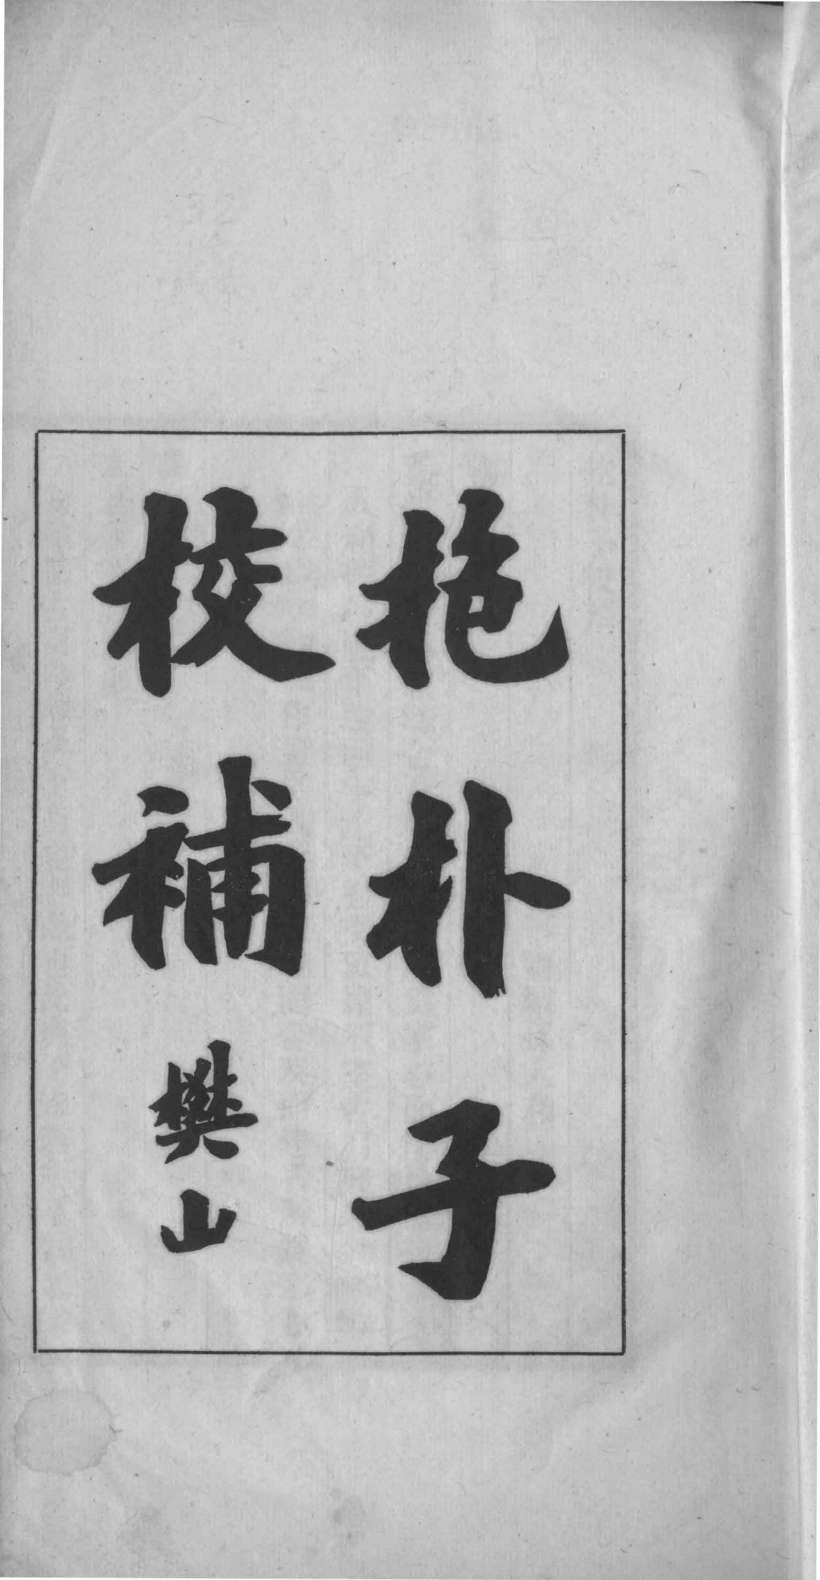 抱朴子
校補
樊山